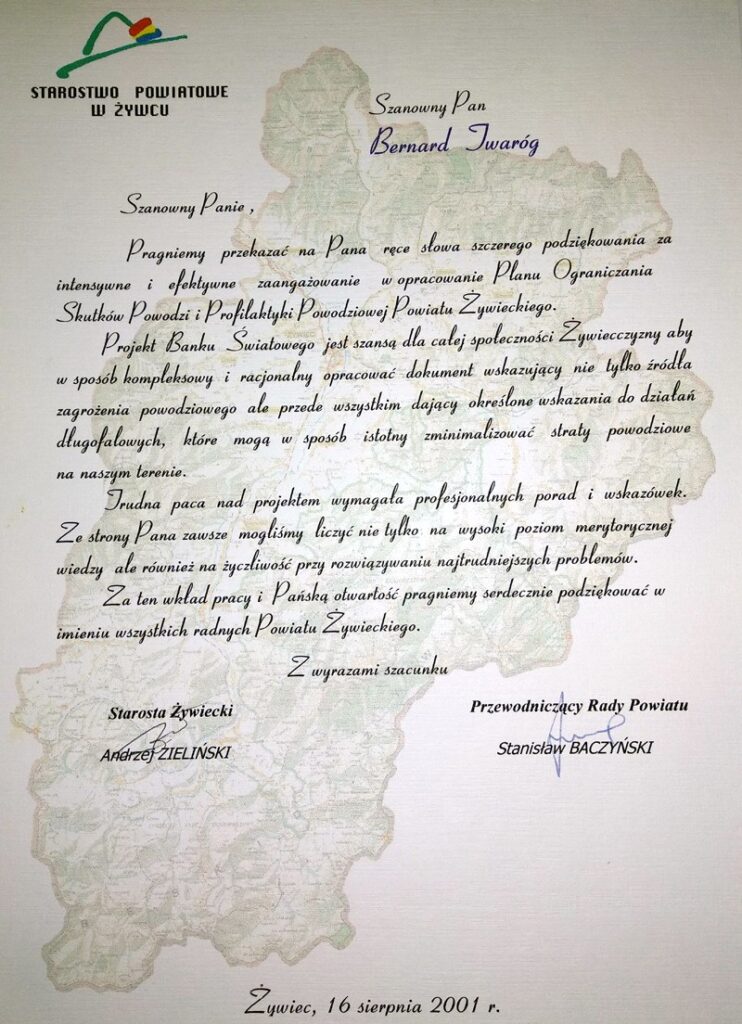 STAROSTWO POWIATOWE
W ŻYWCU
Szanowny Pan
Bernard Twaróg
Szanowny Panie ,
Pragniemy przekazać na Pana ręce słowa szczerego podziękowania za
intensywne i efektywne zaangażowanie w opracowanie Planu Ograniczania
Skutków Powodzi i Profilaktyki Powodziowej Powiatu Żywieckiego.
Projekt Banku Światowego jest szansą dla całej społeczności Żywiecczyzny aby
w sposób kompleksowy i racjonalny opracować dokument wskazujący nie tylko źródła
zagrożenia powodziowego ale przede wszystkim dający określone wskazania do działań
długofalowych, które mogą w sposób istotny zminimalizować straty powodziowe
na naszym terenie.
Trudna paca nad projektem wymagała profesjonalnych porad i wskazówek.
Ze strony Pana zawsze mogliśmy liczyć nie tylko na wysoki poziom merytorycznej
wiedzy ale również na życzliwość przy rozwiązywaniu najtrudniejszych problemów.
Za ten wkład pracy i Pańską otwartość pragniemy serdecznie podziękować w
imieniu wszystkich radnych Powiatu Żywieckiego.
Z wyrazami szacunku
Starosta Żywiecki
Andrzej ZIELIŃSKI
Przewodniczący Rady Powiatu
Stanisław BACZYŃSKI
Żywiec, 16 sierpnia 2001 r.